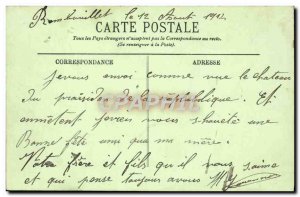 Rambouillet le 12 Aout 1912
CARTE POSTALE
Tous les Pays étrangers n'acceptent pas la Correspondance au recto.
(Se renseigner à la Poste).
CORRESPONDANCE
ADRESSE
Je vous envoi comme vue le chateau
du président de la république. Et
en mettent je vous souhéte une
Bonne fête ami que ma mère.
Votre frère et fils qu'il vous aime
et qui panse toujour avous